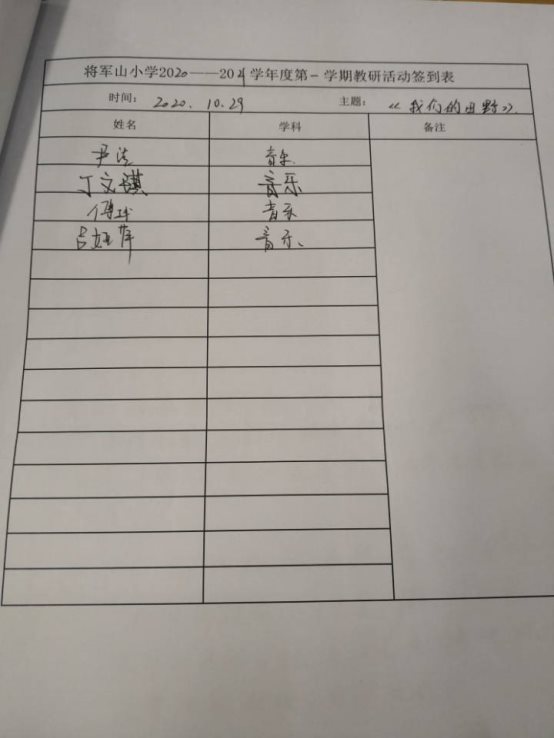 将军山小学2020——2021学年度第一学期教研活动签到表
时间： 2020. 10. 29 主题： 《我们的田野》.
姓名 学科 备注
尹 音乐.
丁文琪 音乐
傅 音乐
吕 萍 音乐、